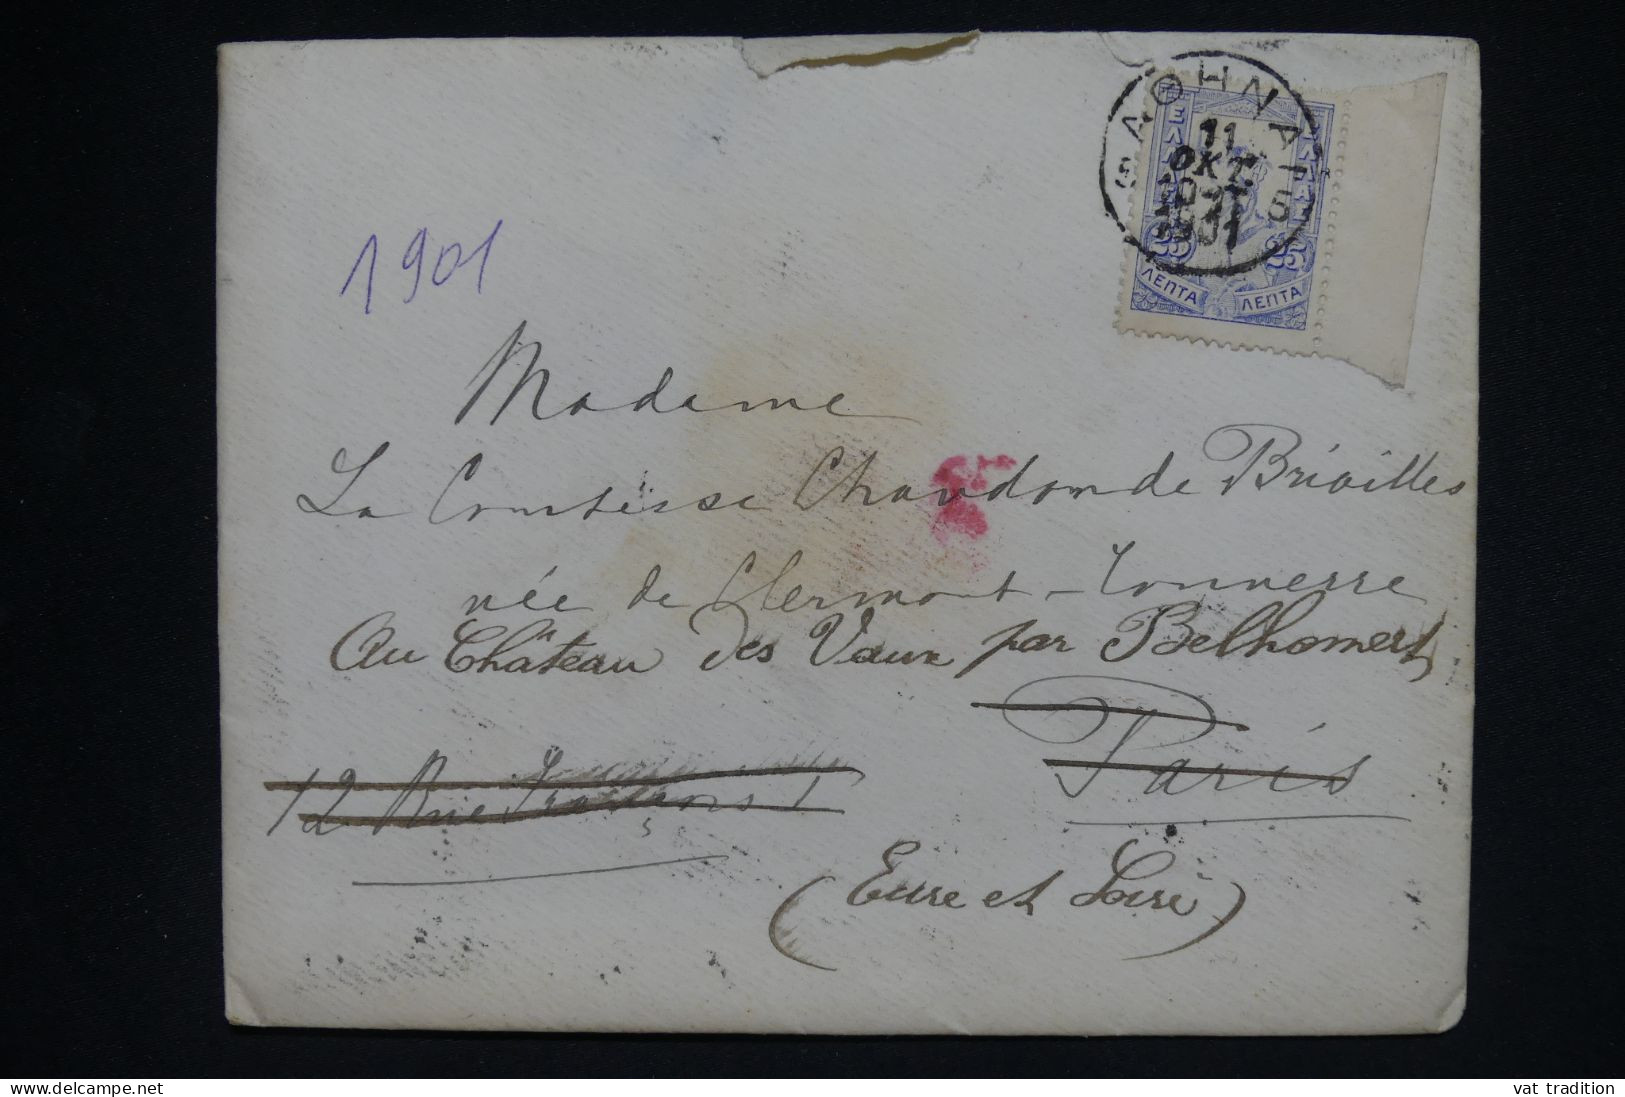 ΑΘΗΝΑΙ
11
ΟΚΤ.
1901
ΕΛΛΑΣ
25 25
ΛΕΠΤΑ ΛΕΠΤΑ
1901
Madame
La Comtesse Chandon de Briailles
née de Clermont-Tonnerre
Au Château des Vaux par Belhomert
Paris
12 Rue François I
(Eure et Loire)
vat tradition